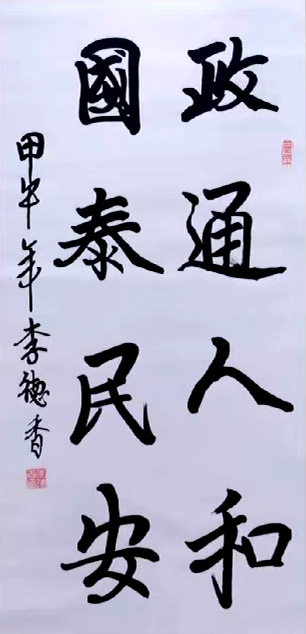 政通人和
國泰民安
甲午年李德香